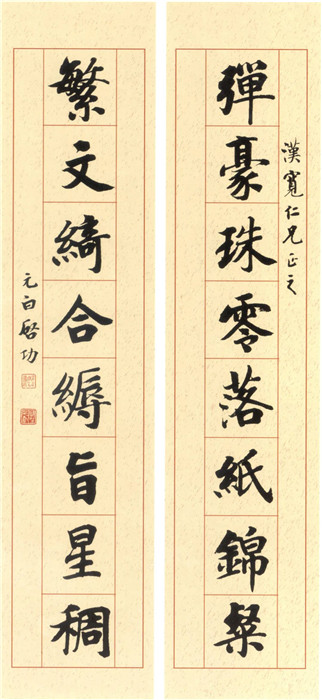 彈豪珠零落紙錦粲
漢寬仁兄正之
繁文綺合縟旨星稠
元白啓功